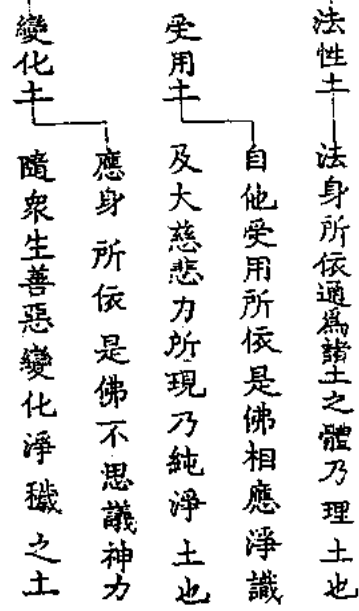 法性土　法身所依通為諸土之體乃理土也
受用土　自他受用所依是佛相應淨識
及大慈悲力所現乃純淨土也
變化土　應身所依是佛不思議神力
隨眾生善惡變化淨穢之土